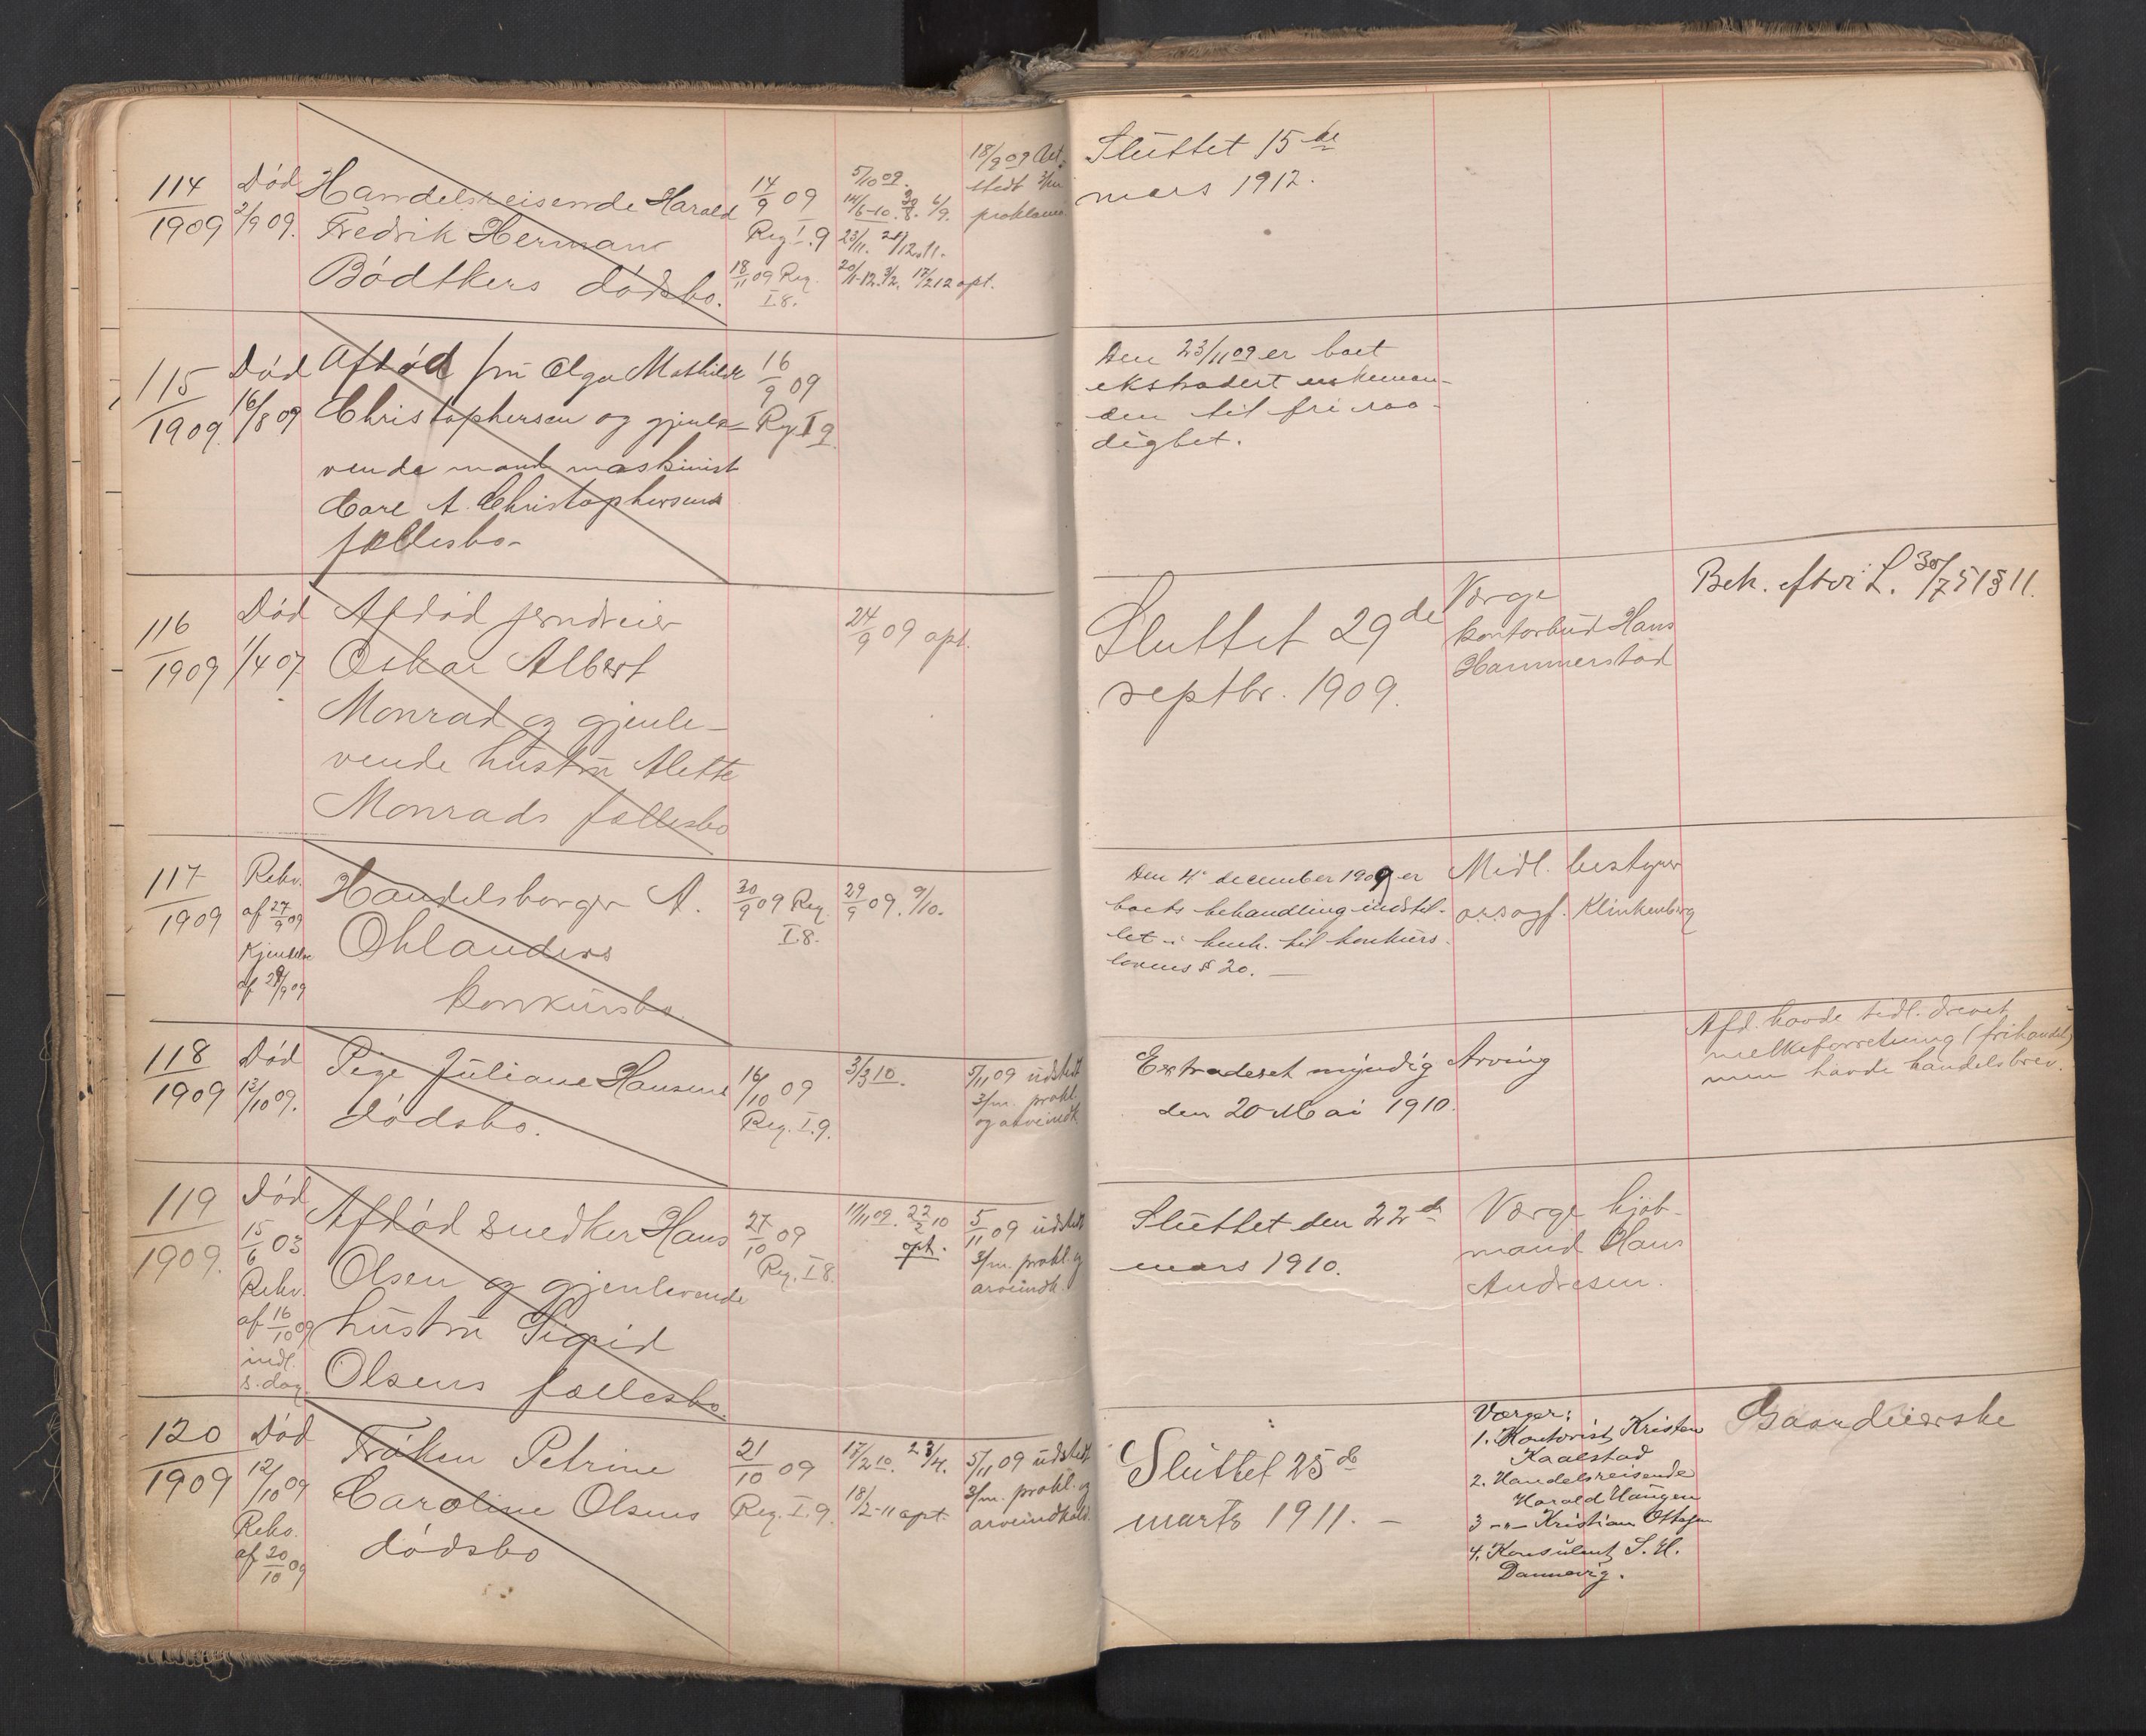 114
1909
Død
2/9 09.
Handelsreisende Harald
Fredrik Herman
Bødtkers dødsbo.
14/9 09
Reg I.9
18/11 09 Reg.
I.8.
5/10 09.
23/11.
17/2 12 opt.
18/9 09 Ut-
stedt 3/m
proklama
Sluttet 15de
mars 1912.
115
1909.
Død
16/8 09
Afdød fru Olga Mathilde
Christophersen og gjenle-
vende mand maskinist
Carl A. Christophersens
fællesbo-
16/9 09
Reg I 9
Den 23/11 09 er boet
ekstradert enkeman-
den til fri raa-
dighet.
116
1909
Død
1/4 07
Afdød jerndreier
Oskar Albert
Monrad og gjenle-
vende hustru Alette
Monrads fællesbo
24/9 09 opt.
Sluttet 29de
septbr. 1909.
Værge
kontorbud Hans
Hammerstad
Bek. efter L. 30/7 51 § 11.
117
1909
Rekv.
af 27/9 09
Kjendelse
af 29/9 09
Handelsborger A.
Ohlanders
konkursbo.
30/9 09 Reg.
I.8.
29/9 09. 9/10.
Den 4. december 1909 er
boets behandling indstil-
let i henh. til konkurs-
lovens § 20. —
Midl. bestyrer
o.r.sagf. Klinkenberg
118
1909
Død
12/10 09.
Pige Juliane Hansens
dødsbo.
16/10 09
Reg. I.9.
3/3 10.
5/11 09 udstedt
3/m. prokl.
og arveindk.
Extraderet myndig Arving
den 20 Mai 1910.
Afd. havde tidl. drevet
melkeforretning (frihandel)
men havde handelsbrev.
119
1909.
Død
15/6 03
Rekv.
af 16/10 09
indl.
s. dag.
Afdød snedker Hans
Olsen og gjenlevende
hustru Sigrid
Olsens fællesbo.
27/10 09
Reg. I 8.
11/11 09. 22/2 10
opt.
5/11 09 udstedt
3/m. prokl. og
arveindk.
Sluttet den 22de
mars 1910.
Værge kjøb-
mand Hans
Andresen.
120
1909
Død
12/10 09
Rekv.
af 20/10 09
Frøken Petrine
Caroline Olsens
dødsbo
21/10 09
Reg. I.9.
17/2 10. 23/4.
18/2-11 opt.
5/11 09 udstedt
3/m. prokl. og
arveindkald.
Sluttet 25de
marts 1911. —
Værger:
1. Kontorist Kristen
Kaalstad
2. Handelsreisende
Harald Haugen
3 -"- Kristian Ottesen
4. Konsulent S. H.
Dannevig.
Gaardeierske